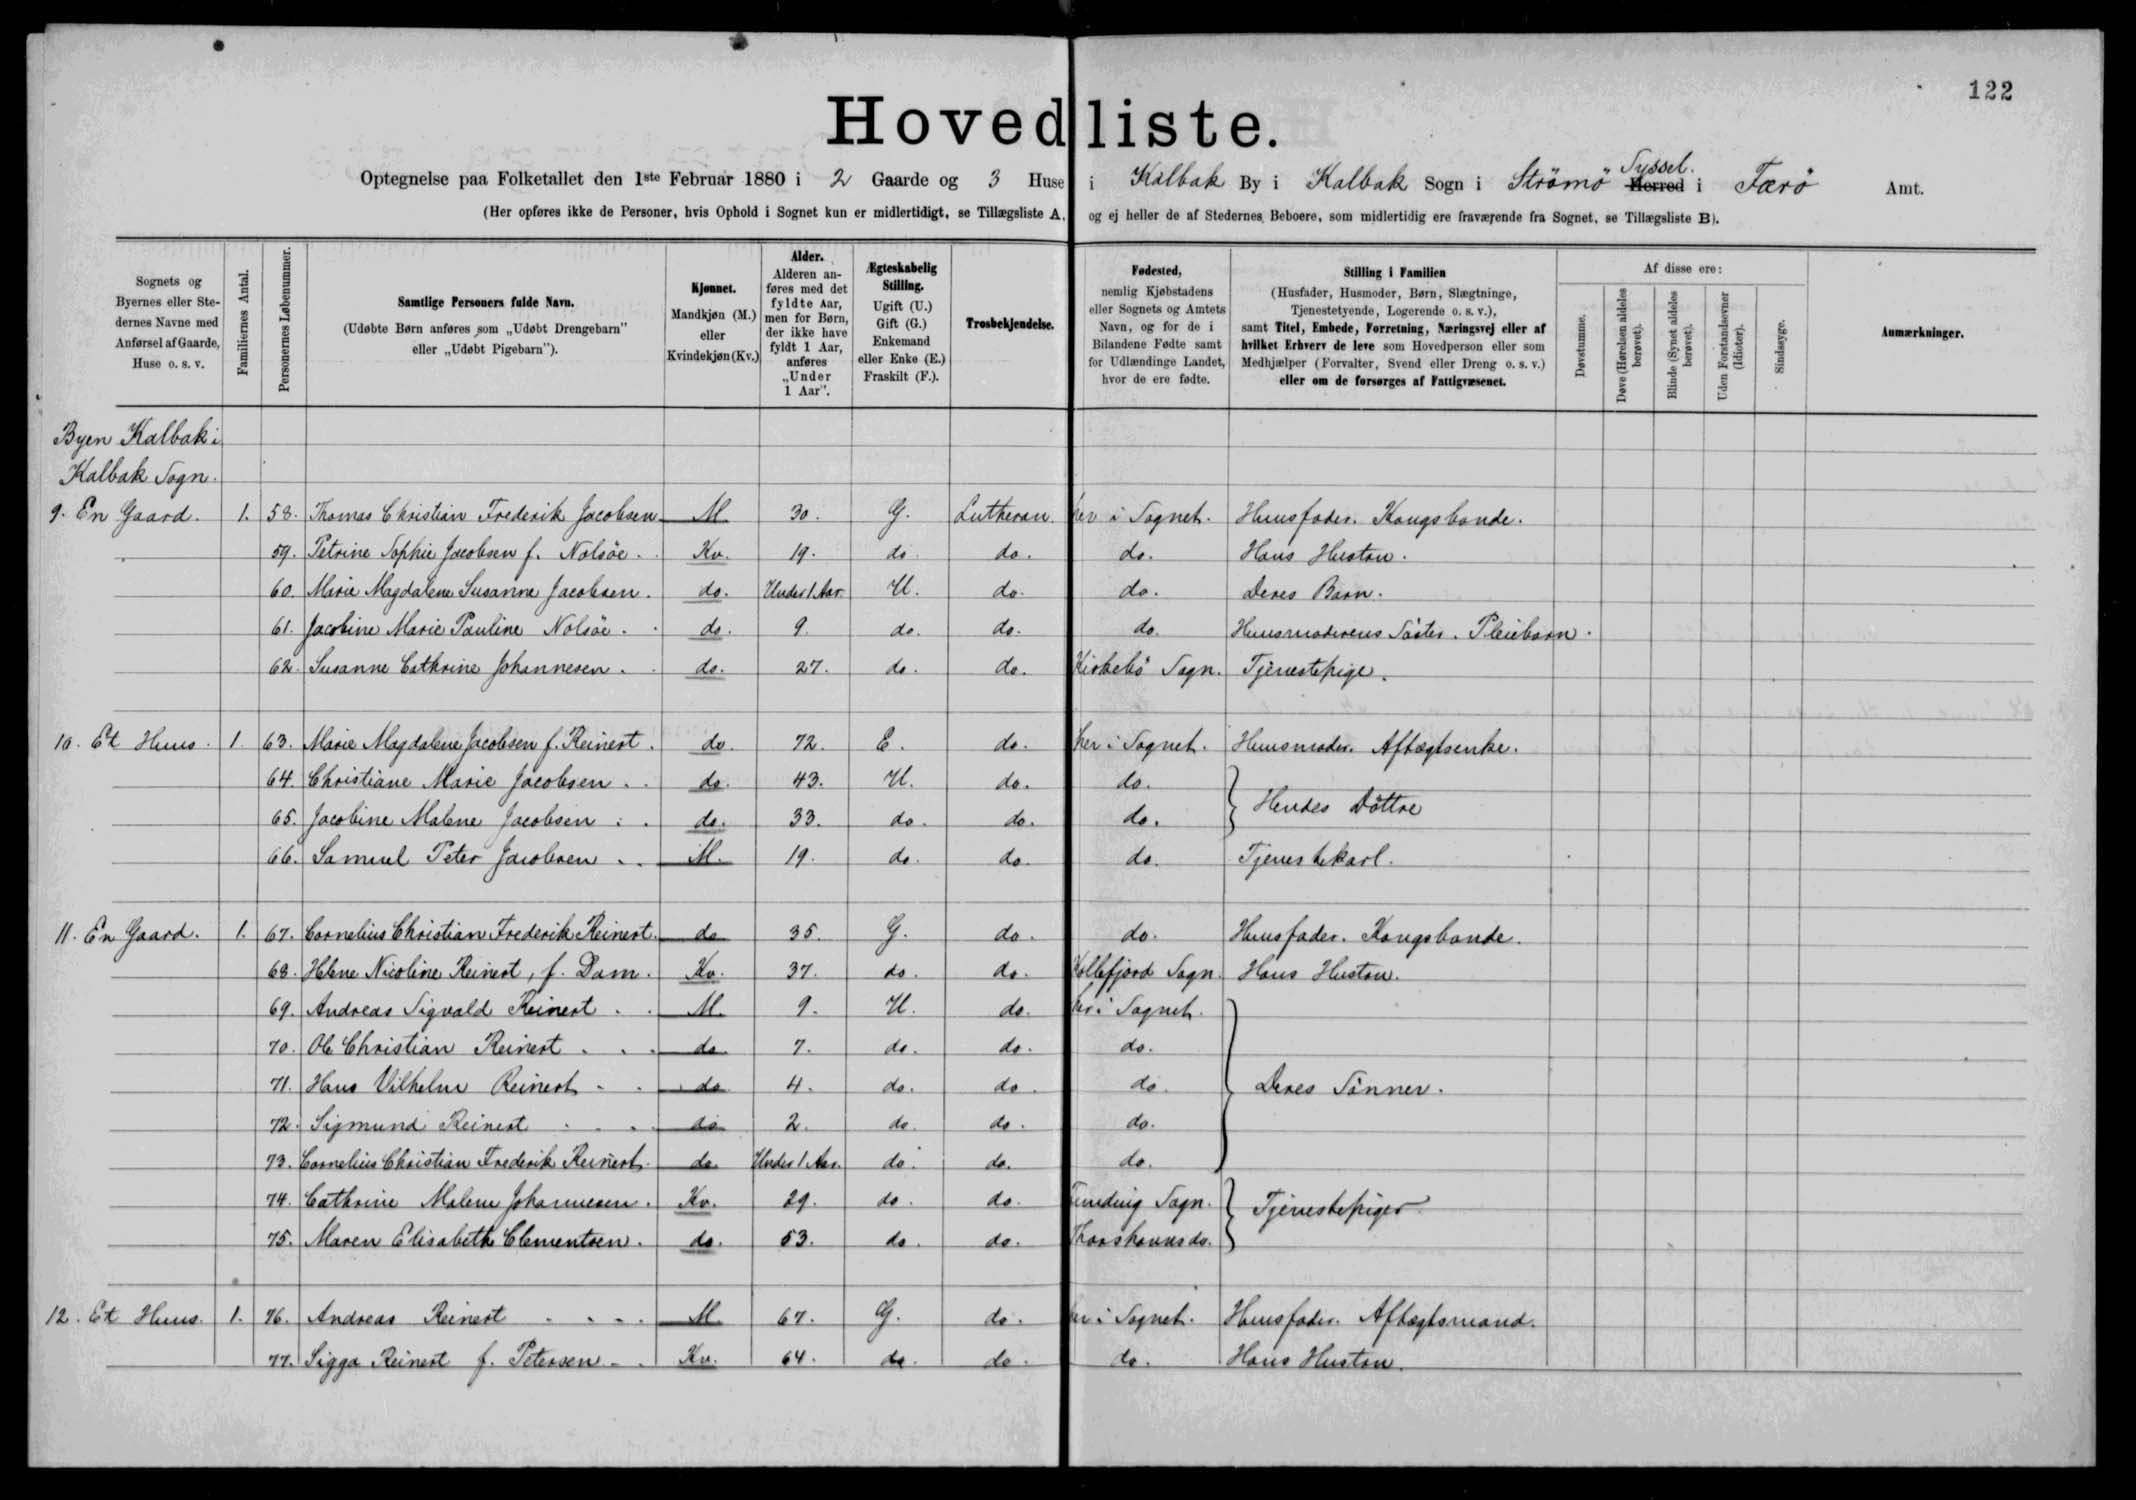 122
Hovedliste.
Optegnelse paa Folketallet den 1ste Februar 1880 i 2 Gaarde og 3 Huse i Kalbak By i Kalbak Sogn i Strömö Herred Syssel. i Færö Amt.
(Her opføres ikke de Personer, hvis Ophold i Sognet kun er midlertidigt, se Tillægsliste A, og ej heller de af Stedernes Beboere, som midlertidig ere fraværende fra Sognet, se Tillægsliste B).
Sognets og Byernes eller Stedernes Navne med Anførsel af Gaarde, Huse o. s. v.
Familiernes Antal.
Personernes Løbenummer.
Samtlige Personers fulde Navn. (Udøbte Børn anføres som „Udøbt Drengebarn" eller „Udøbt Pigebarn").
Kjønnet. Mandkjøn (M.) eller Kvindekjøn (Kv.)
Alder. Alderen anføres med det fyldte Aar, men for Børn, der ikke have fyldt 1 Aar, anføres „Under 1 Aar".
Ægteskabelig Stilling. Ugift (U.) Gift (G.) Enkemand eller Enke (E.) Fraskilt (F.).
Trosbekjendelse.
Fødested, nemlig Kjøbstadens eller Sognets og Amtets Navn, og for de i Bilandene Fødte samt for Udlændinge Landet, hvor de ere fødte.
Stilling i Familien (Husfader, Husmoder, Børn, Slægtninge, Tjenestetyende, Logerende o. s. v.), samt Titel, Embede, Forretning, Næringsvej eller af hvilket Erhverv de leve som Hovedperson eller som Medhjælper (Forvalter, Svend eller Dreng o. s. v.) eller om de forsørges af Fattigvæsenet.
Af disse ere:
Døvstumme.
Døve (Hørelsen aldeles berøvet).
Blinde (Synet aldeles berøvet).
Uden Forstandsevner (Idioter).
Sindssyge.
Anmærkninger.
Byen Kalbak i
Kalbak Sogn.
9. En Gaard. 1. 58. Thomas Christian Frederik Jacobsen M 30. G. Lutheran. her i Sognet. Huusfader. Kongsbonde.
59. Petrine Sophie Jacobsen f. Nolsöe. Kv. 19. do do. do. Hans Hustru.
60. Marie Magdalene Susanne Jacobsen. do. Under 1 Aar. U. do. do. Deres Barn.
61. Jacobine Marie Pauline Nolsöe. do. 9. do. do. do. Huusmoderens Söster. Pleiebarn.
62. Susanne Cathrine Johannesen. do. 27. do. do. Kirkebö Sogn. Tjenestepige.
10. Et Huus. 1. 63. Marie Magdalene Jacobsen f. Reinert. do. 72. E. do. her i Sognet. Huusmoder. Aftægtsenke.
64. Christiane Marie Jacobsen. do. 43. U. do. do.
65. Jacobine Malene Jacobsen. do. 33. do. do. do. Hendes Döttre
66. Samuel Peter Jacobsen M. 19. do. do. do. Tjenestekarl.
11. En Gaard. 1. 67. Cornelius Christian Frederik Reinert. do 35. G. do. do. Huusfader. Kongsbonde.
68. Helene Nicoline Reinert, f. Dam. Kv. 37. do. do. Kollefjord Sogn. Hans Hustru.
69. Andreas Sigvald Reinert M. 9. U. do. her i Sognet.
70. Ole Christian Reinert do 7. do. do. do.
71. Hans Vilhelm Reinert do 4. do. do. do. Deres Sönner.
72. Sigmund Reinert do 2. do. do. do.
73. Cornelius Christian Frederik Reinert. do Under 1 Aar. do. do. do.
74. Cathrine Malene Johannesen. Kv. 29. do. do. Funding Sogn. Tjenestepiger
75. Maren Elisabeth Clementsen. do. 53. do. do. Thorshavns do.
12. Et Huus. 1. 76. Andreas Reinert M. 67. G. do. her i Sognet. Huusfader. Aftægtsmand.
77. Sigga Reinert f. Petersen Kv. 64. do. do. do. Hans Hustru.